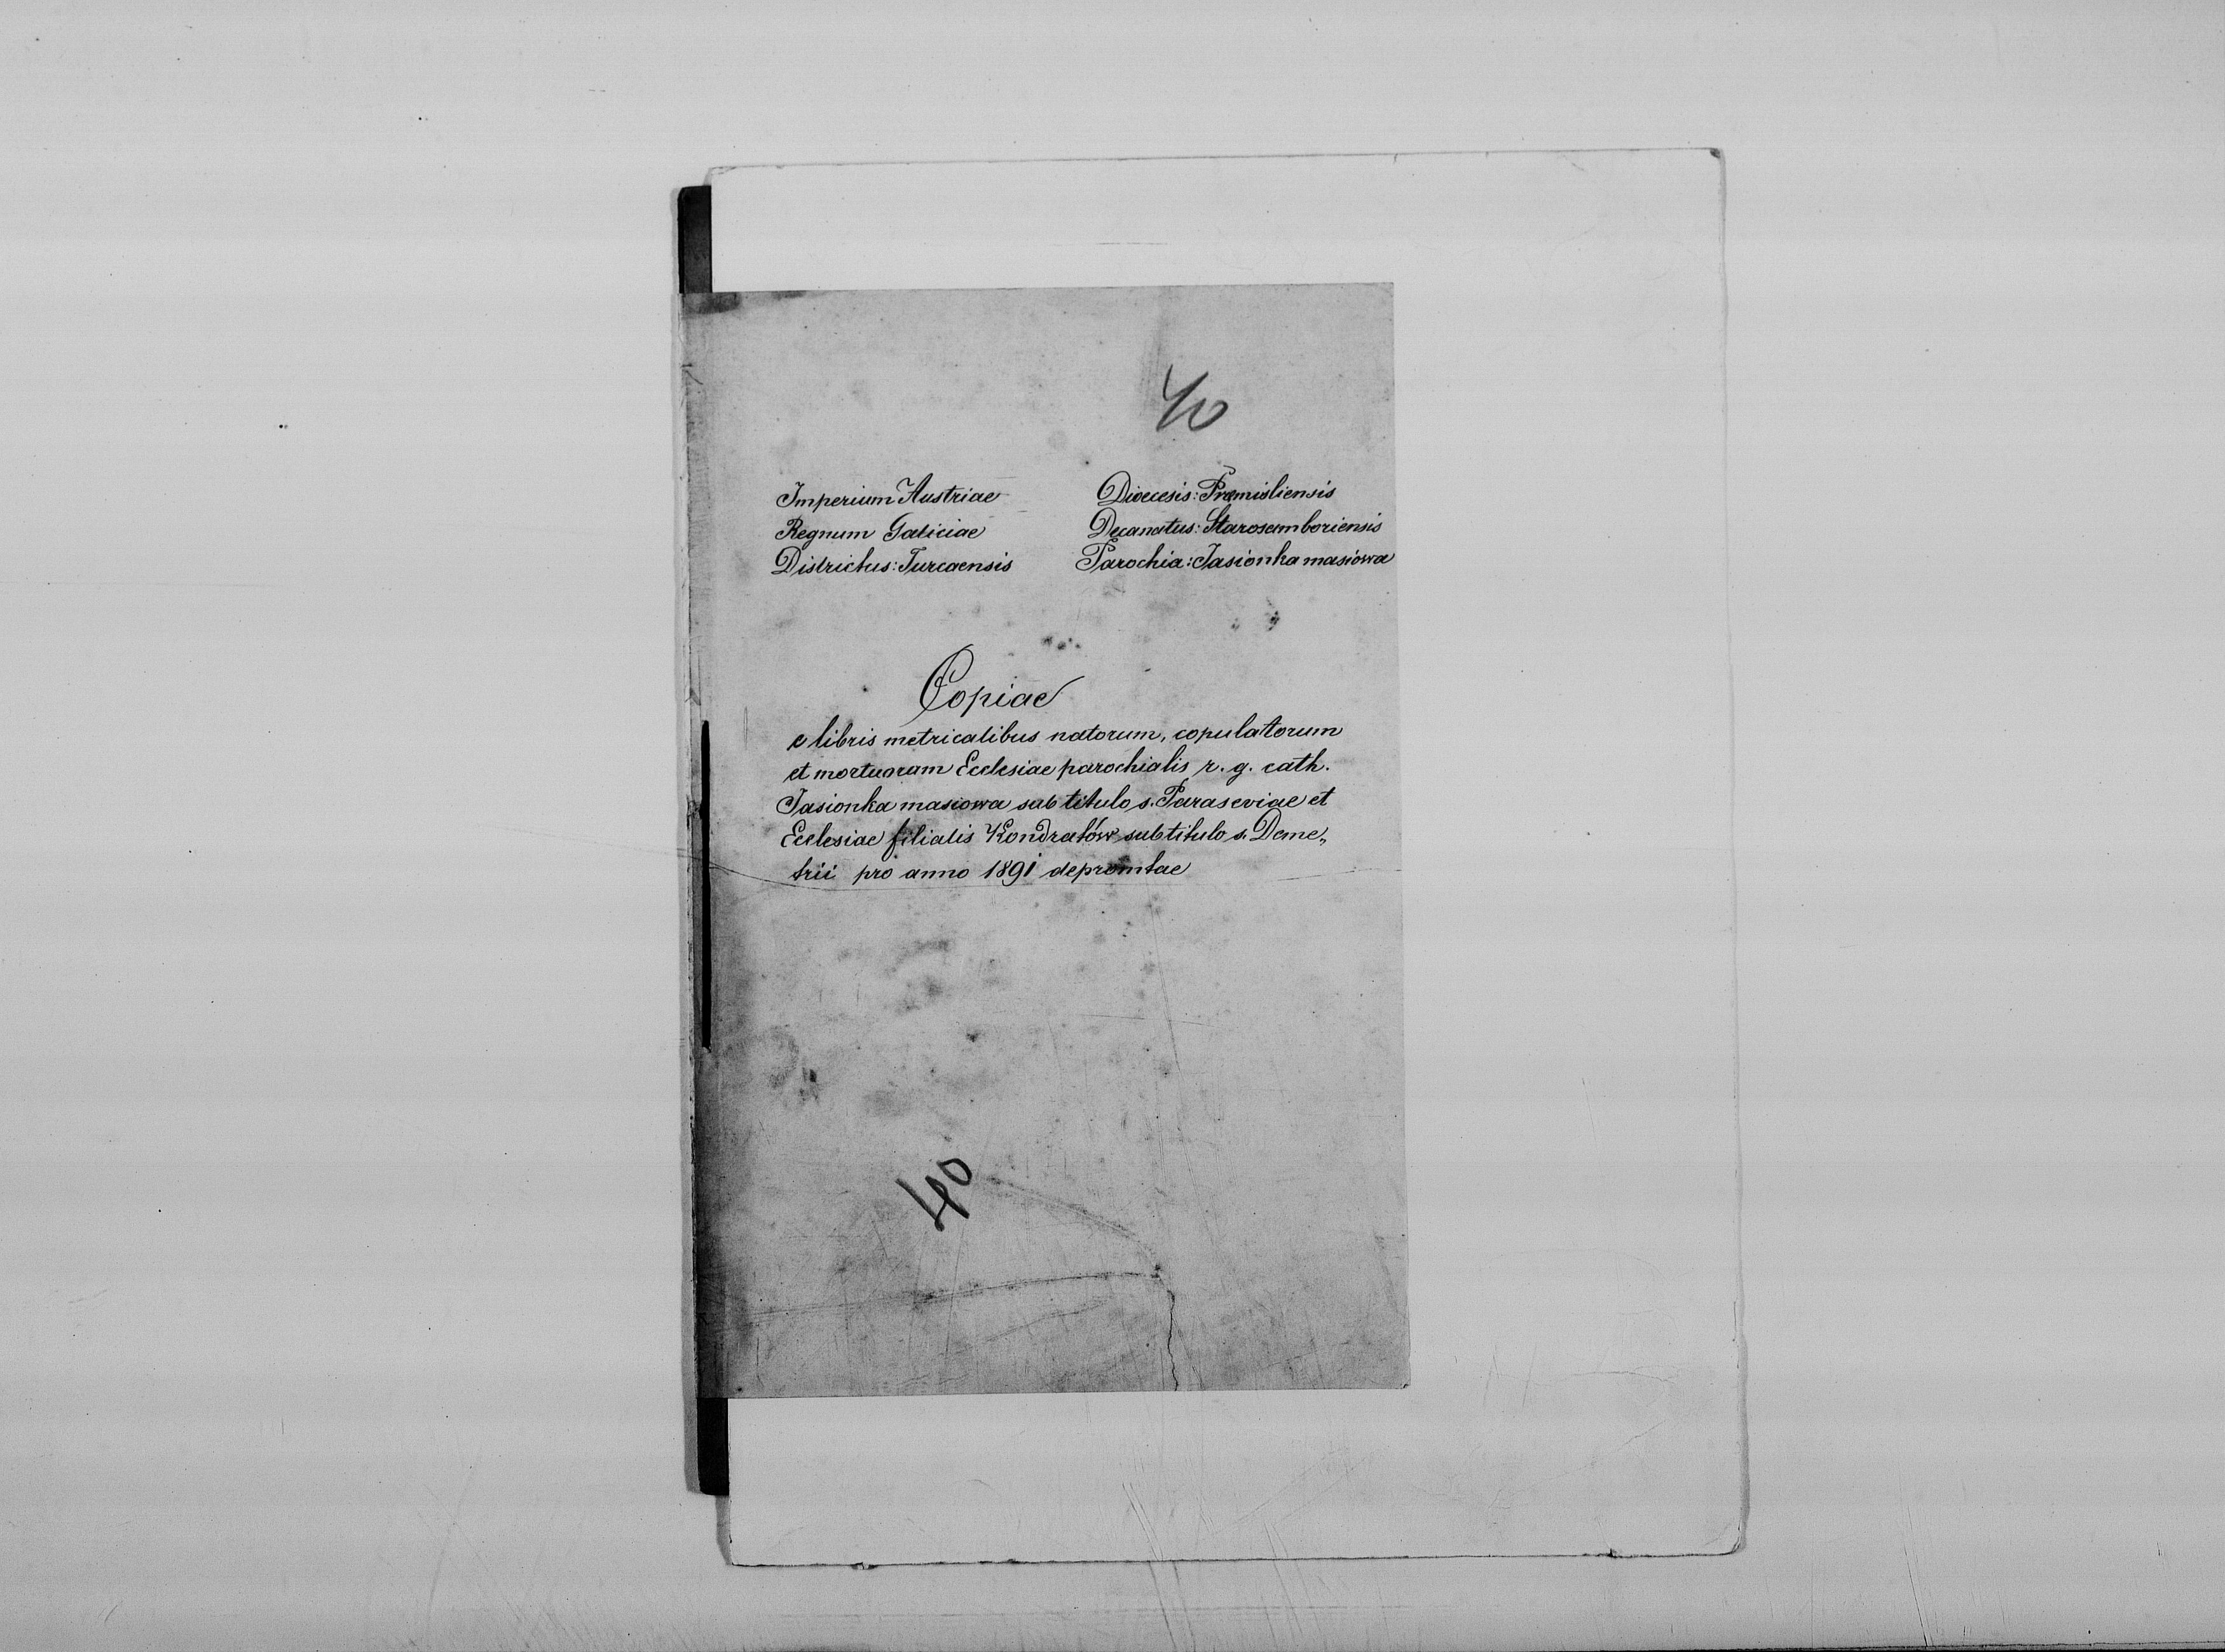 40
Imperium Austriae
Regnum Galiciae
Districtus: Turcaensis
Dioecesis: Premisliensis
Decanatus: Starosamboriensis
Parochia: Jasionka masiowa
Copiae
e libris metricalibus natorum, copulatorum
et mortuorum Ecclesiae parochialis r. g. cath.
Jasionka masiowa sub titulo s. Parasceviae et
Ecclesiae filialis Kondratów sub titulo s. Deme„
trii pro anno 1891 depromtae
40